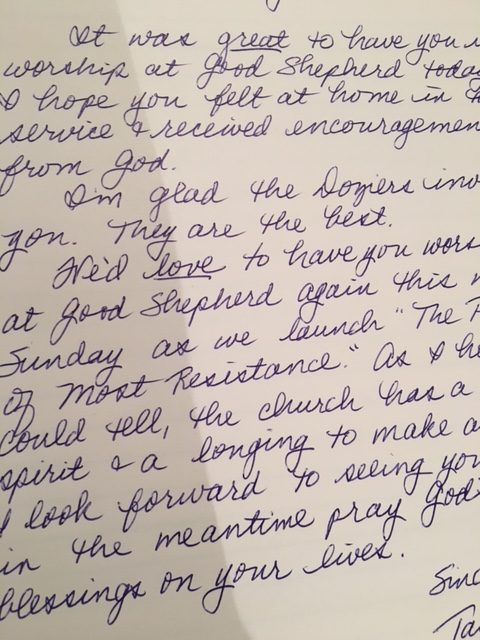 It was great to have you
worship at Good Shepherd today
I hope you felt at home in
service & received encouragemen
from God.
I'm glad the Doziers inv
you. They are the best.
We'd love to have you wors
at Good Shepherd again this
Sunday as we launch "The P
of Most Resistance." As I he
could tell, the church has a
spirit & a longing to make a
I look forward to seeing you
in the meantime pray God's
blessings on your lives.
Sinc
Ta